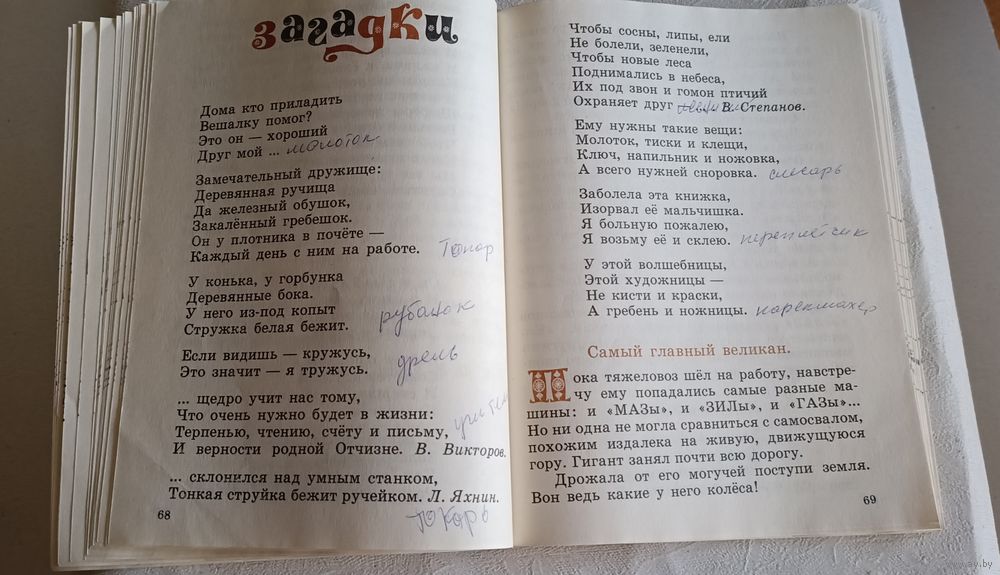 загадки
Дома кто приладить
Вешалку помог?
Это он — хороший
Друг мой ... молоток
Замечательный дружище:
Деревянная ручища
Да железный обушок,
Закалённый гребешок.
Он у плотника в почёте —
Каждый день с ним на работе. Топор
У конька, у горбунка
Деревянные бока.
У него из-под копыт
Стружка белая бежит. рубанок
Если видишь — кружусь,
Это значит — я тружусь. дрель
... щедро учит нас тому,
Что очень нужно будет в жизни:
Терпенью, чтению, счёту и письму,
И верности родной Отчизне. В. Викторов.
... склонился над умным станком,
Тонкая струйка бежит ручейком. Л. Яхнин.
токарь
68
Чтобы сосны, липы, ели
Не болели, зеленели,
Чтобы новые леса
Поднимались в небеса,
Их под звон и гомон птичий
Охраняет друг В. Степанов.
Ему нужны такие вещи:
Молоток, тиски и клещи,
Ключ, напильник и ножовка,
А всего нужней сноровка. слесарь
Заболела эта книжка,
Изорвал её мальчишка.
Я больную пожалею,
Я возьму её и склею. переплётчик
У этой волшебницы,
Этой художницы —
Не кисти и краски,
А гребень и ножницы. парикмахер
Самый главный великан.
Пока тяжеловоз шёл на работу, навстре-
чу ему попадались самые разные ма-
шины: и «МАЗы», и «ЗИЛы», и «ГАЗы»...
Но ни одна не могла сравниться с самосвалом,
похожим издалека на живую, движущуюся
гору. Гигант занял почти всю дорогу.
Дрожала от его могучей поступи земля.
Вон ведь какие у него колёса!
69
www.ay.by